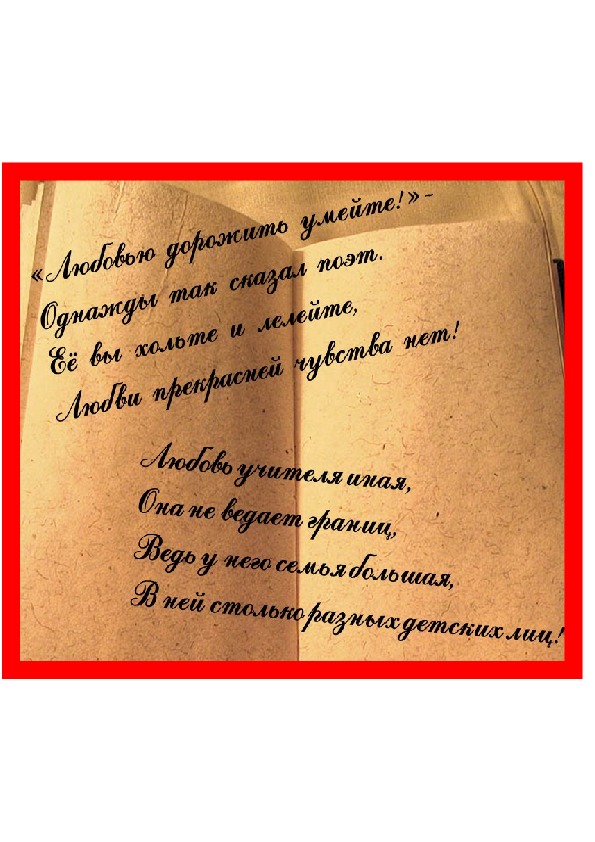 «Любовью дорожить умейте!»-
Однажды так сказал поэт.
Её вы хольте и лелейте,
Любви прекрасней чувства нет!
Любовь учителя иная,
Она не ведает границ,
Ведь у него семья большая,
В ней столько разных детских лиц!